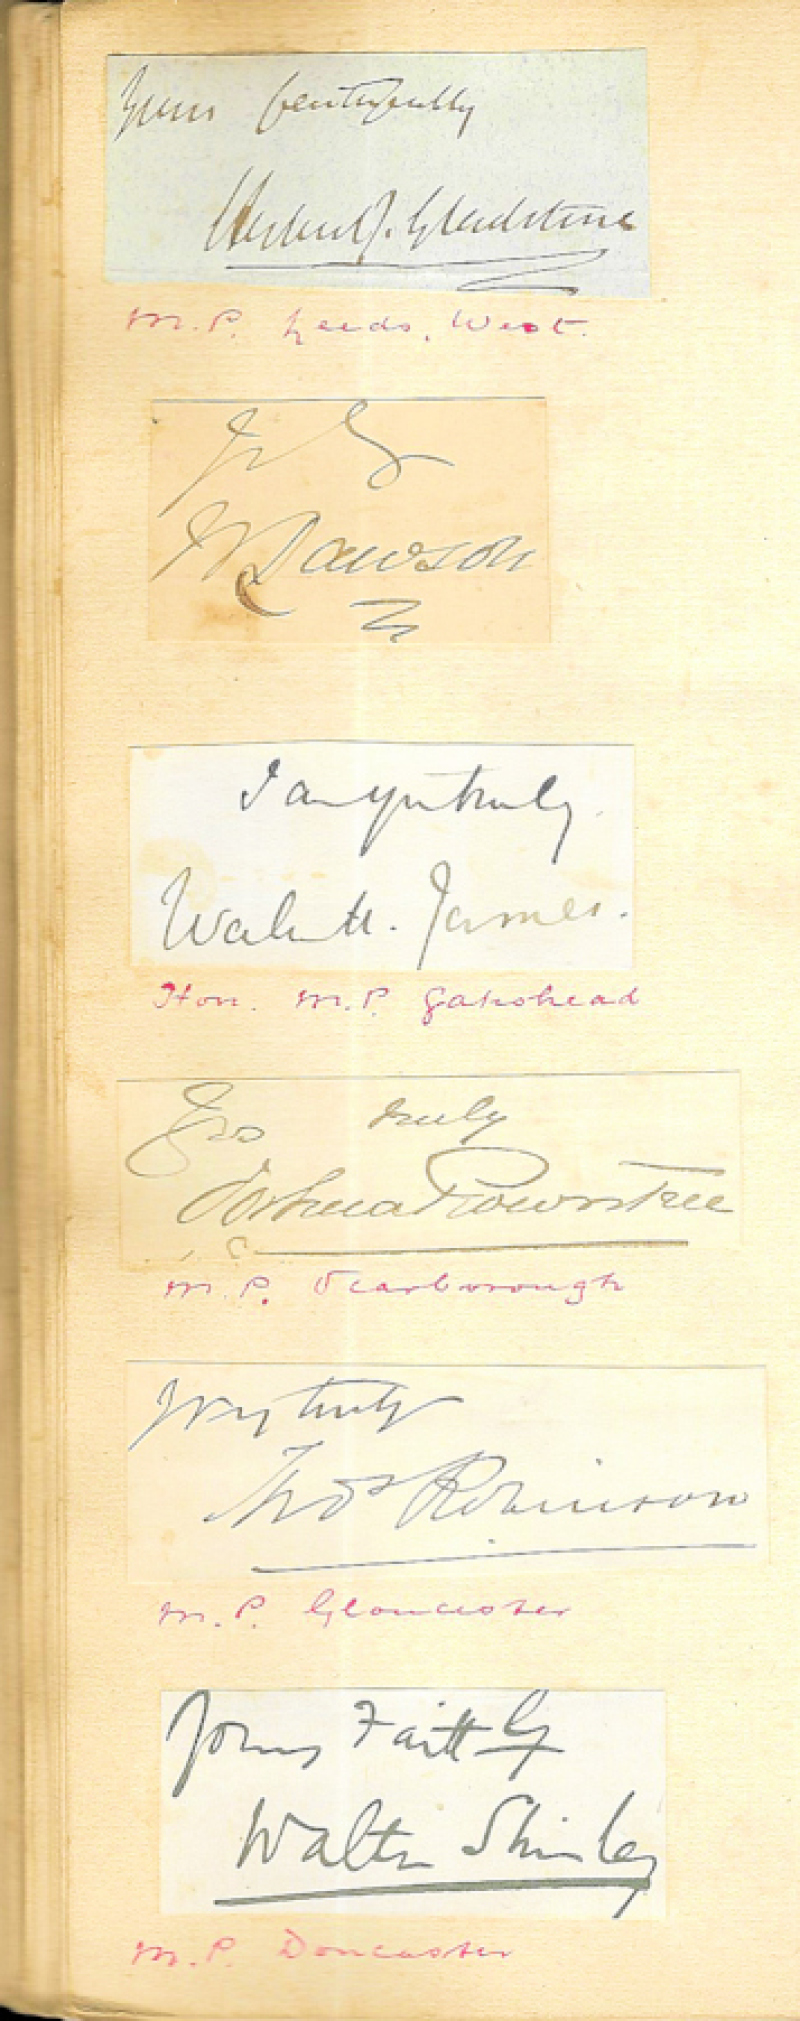 Yours faithfully
Herbert J. Gladstone
M.P. Leeds, West.
Dawson
I am yrs truly
Walter H. James.
Hon. M.P. Gateshead
Yrs truly
Joshua Rowntree
M.P. Scarborough
Very truly
Thos Robinson
M.P. Gloucester
Yours Faithfy
Walter Shirley
M.P. Doncaster